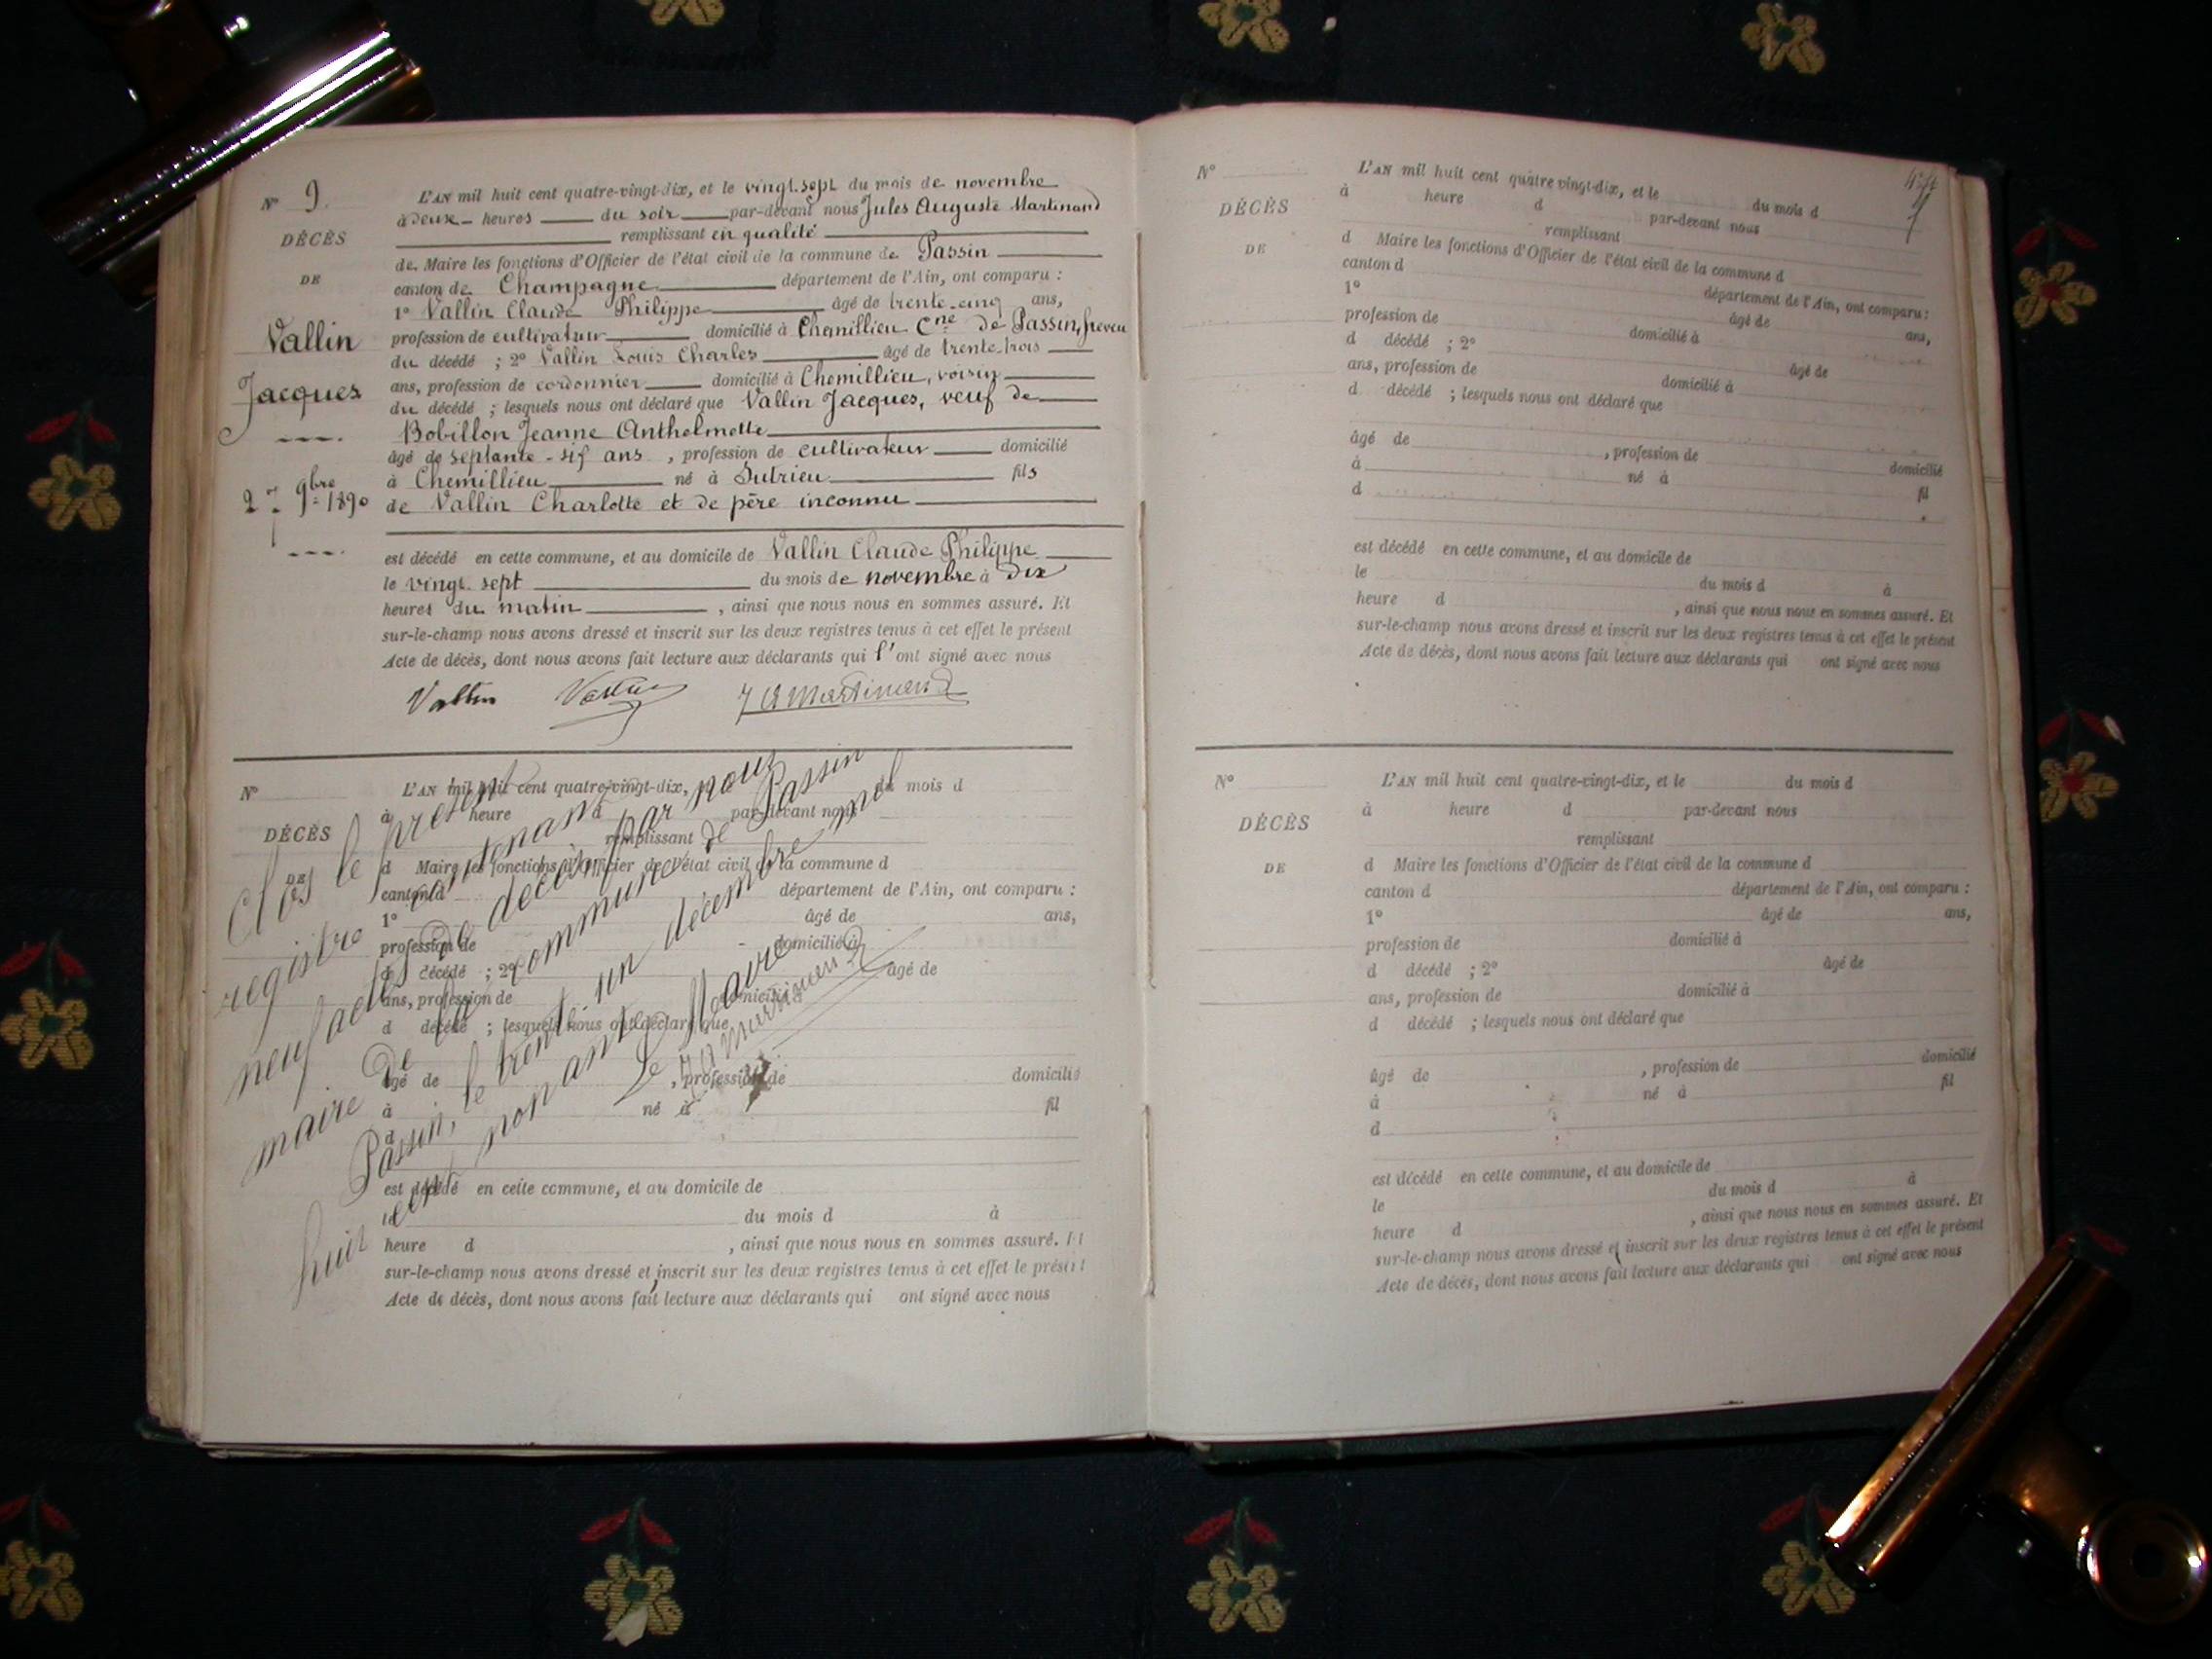 N° 9.
DÉCÈS
DE
Vallin
Jacques
27 9bre 1890
L'AN mil huit cent quatre-vingt-dix, et le vingt-sept du mois de novembre
à deux heures du soir par-devant nous Jules Auguste Martinand
remplissant en qualité
de Maire les fonctions d'Officier de l'état civil de la commune de Passin
canton de Champagne département de l'Ain, ont comparu :
1° Vallin Claude Philippe âgé de trente-cinq ans,
profession de cultivateur domicilié à Chemillieu Cne de Passin, neveu
du décédé ; 2° Vallin Louis Charles âgé de trente-trois
ans, profession de cordonnier domicilié à Chemillieu, voisin
du décédé ; lesquels nous ont déclaré que Vallin Jacques, veuf de
Bobillon Jeanne Anthelmette
âgé de septante-six ans, profession de cultivateur domicilié
à Chemillieu né à Sutrieu fils
de Vallin Charlotte et de père inconnu
est décédé en cette commune, et au domicile de Vallin Claude Philippe
le vingt-sept du mois de novembre à dix
heures du matin, ainsi que nous nous en sommes assuré. Et
sur-le-champ nous avons dressé et inscrit sur les deux registres tenus à cet effet le présent
Acte de décès, dont nous avons fait lecture aux déclarants qui l'ont signé avec nous
Vallin Vallin J A Martinand
N°
DÉCÈS
DE
L'AN mil huit cent quatre-vingt-dix, et le du mois d
à heure d par-devant nous
remplissant
d Maire les fonctions d'Officier de l'état civil de la commune d
canton d département de l'Ain, ont comparu :
1° âgé de ans,
profession de domicilié à
d décédé ; 2° âgé de
ans, profession de domicilié à
d décédé ; lesquels nous ont déclaré que
âgé de , profession de domicilié
à né à fil
d
est décédé en cette commune, et au domicile de
le du mois d à
heure d , ainsi que nous nous en sommes assuré. Et
sur-le-champ nous avons dressé et inscrit sur les deux registres tenus à cet effet le présent
Acte de décès, dont nous avons fait lecture aux déclarants qui ont signé avec nous
Clos le présent
registre contenant
neuf actes de décès par nous
maire de la commune de Passin
Passin, le trente un décembre mil
huit cent nonante
Le Maire
J A Martinand
N°
DÉCÈS
DE
L'AN mil huit cent quatre-vingt-dix, et le du mois d
à heure d par-devant nous
remplissant
d Maire les fonctions d'Officier de l'état civil de la commune d
canton d département de l'Ain, ont comparu :
1° âgé de ans,
profession de domicilié à
d décédé ; 2° âgé de
ans, profession de domicilié à
d décédé ; lesquels nous ont déclaré que
âgé de , profession de domicilié
à né à fil
d
est décédé en cette commune, et au domicile de
le du mois d à
heure d , ainsi que nous nous en sommes assuré. Et
sur-le-champ nous avons dressé et inscrit sur les deux registres tenus à cet effet le présent
Acte de décès, dont nous avons fait lecture aux déclarants qui ont signé avec nous
N°
DÉCÈS
DE
L'AN mil huit cent quatre-vingt-dix, et le du mois d
à heure d par-devant nous
remplissant
d Maire les fonctions d'Officier de l'état civil de la commune d
canton d département de l'Ain, ont comparu :
1° âgé de ans,
profession de domicilié à
d décédé ; 2° âgé de
ans, profession de domicilié à
d décédé ; lesquels nous ont déclaré que
âgé de , profession de domicilié
à né à fil
d
est décédé en cette commune, et au domicile de
le du mois d à
heure d , ainsi que nous nous en sommes assuré. Et
sur-le-champ nous avons dressé et inscrit sur les deux registres tenus à cet effet le présent
Acte de décès, dont nous avons fait lecture aux déclarants qui ont signé avec nous